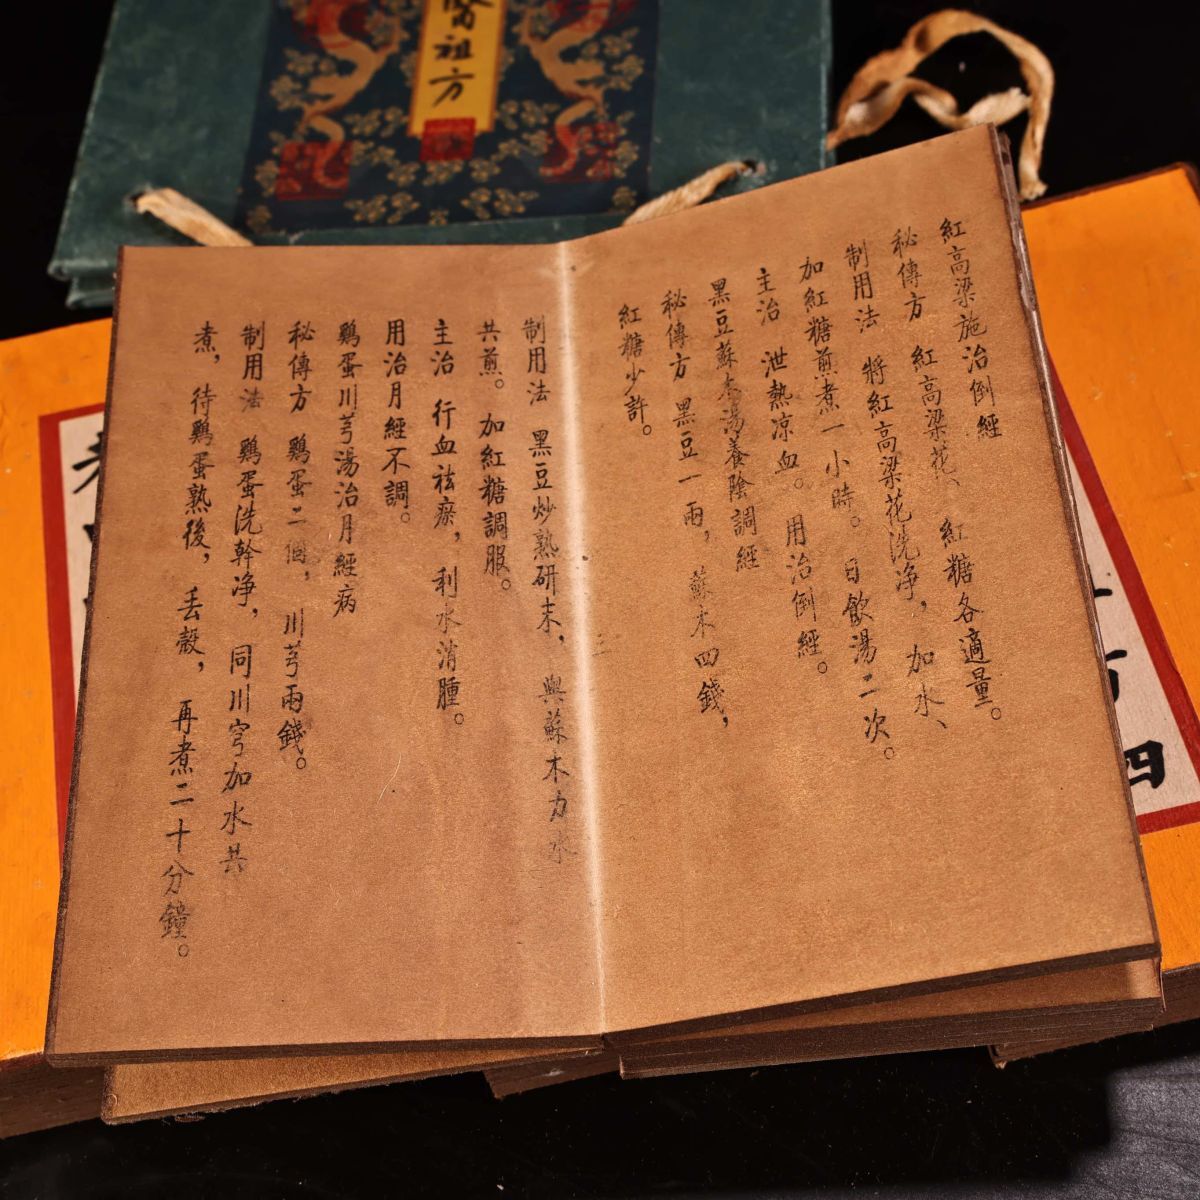 醫祖方
紅高梁施治倒經
秘傳方 紅高梁花、紅糖各適量。
制用法 將紅高梁花洗净，加水、
加紅糖煎煮一小時。日飲湯二次。
主治 泄熱凉血。用治倒經。
黑豆蘇木湯養陰調經
秘傳方 黑豆一兩，蘇木四錢，
紅糖少許。
制用法 黑豆炒熟研末，與蘇木力水
共煎。加紅糖調服。
主治 行血祛瘀，利水消腫。
用治月經不調。
鷄蛋川芎湯治月經病
秘傳方 鷄蛋二個，川芎兩錢。
制用法 鷄蛋洗幹净，同川穹加水共
煮，待鷄蛋熟後，丢殼，再煮二十分鐘。
三
方
四